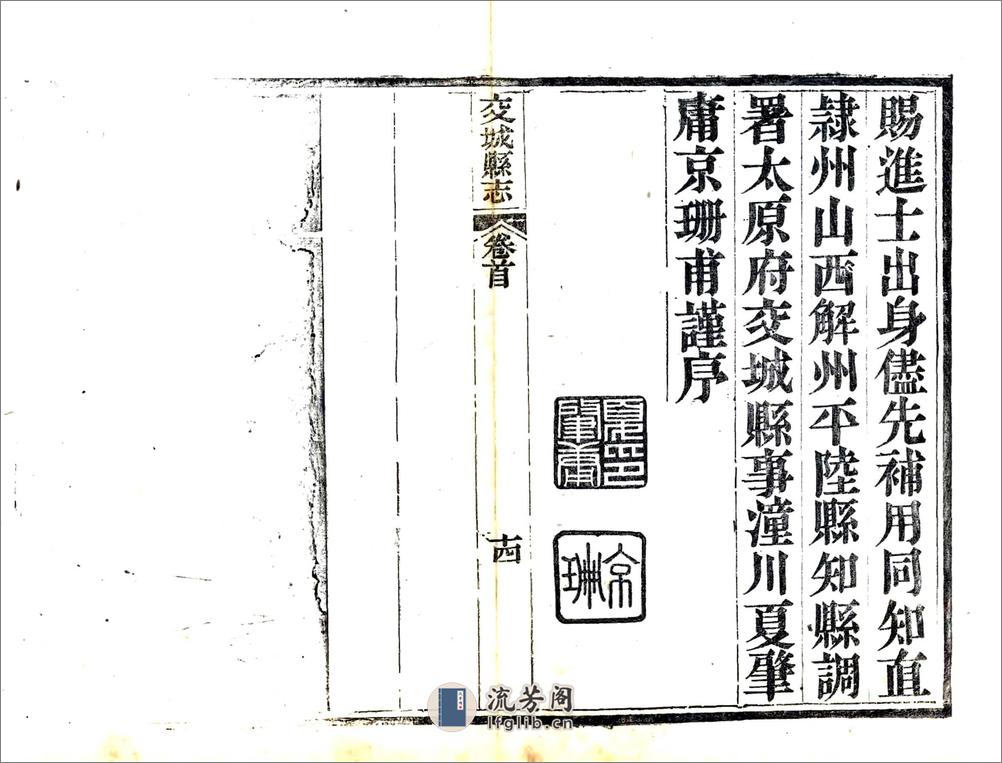 賜進士出身儘先補用同知直
隸州山西解州平陸縣知縣調
署太原府交城縣事潼川夏肇
庸京珊甫謹序
夏印
肇庸
京
珊
交城縣志
卷首
十四
流芳阁
lfglib.cn